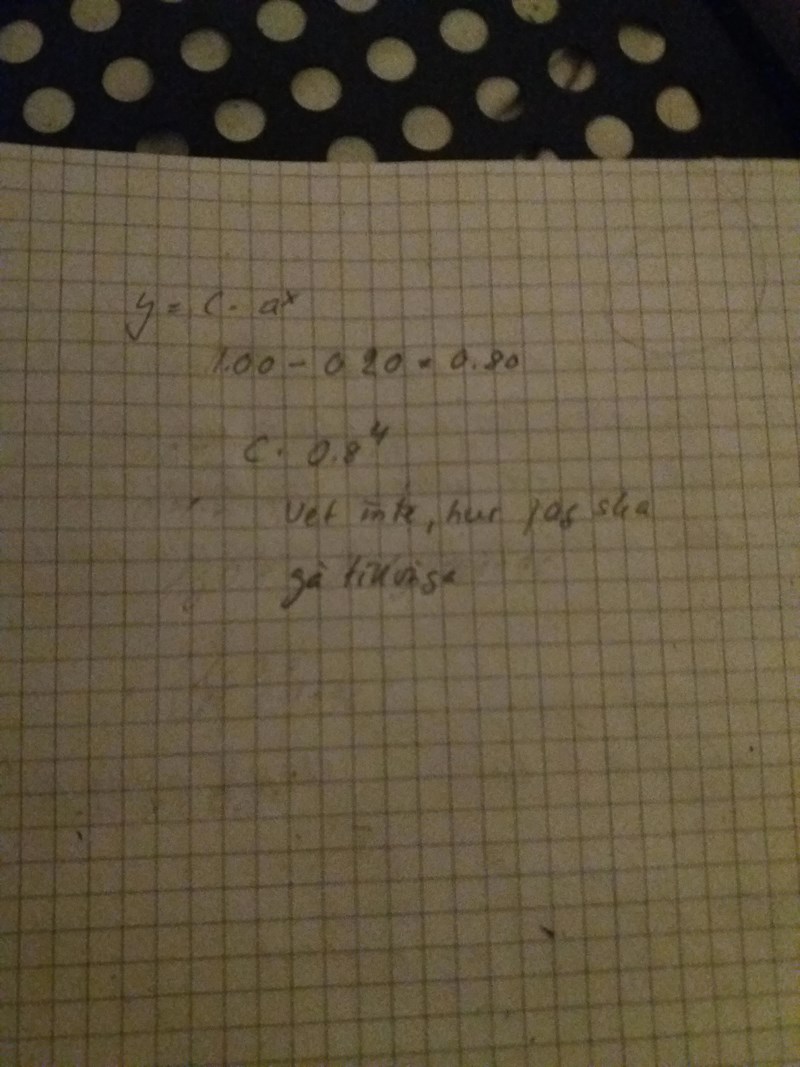 y = C · aˣ
1.00 - 0.20 = 0.80
C · 0.8⁴
Vet inte, hur jag ska
gå tillväga